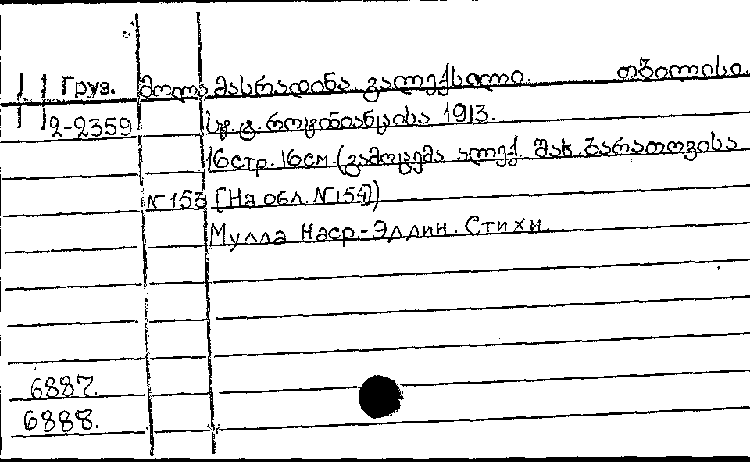 Груз. მოლა მასრადინა. გალექსილი. თბილისი.
2-2359 სტ. გ. როტინიანცისა 1913.
16стр. 16см. (გამოცემა ალექ. შახ. ბარათოვისა
№153 [На обл. №154])
Мулла Наср-Эддин. Стихи.
6887.
6888.